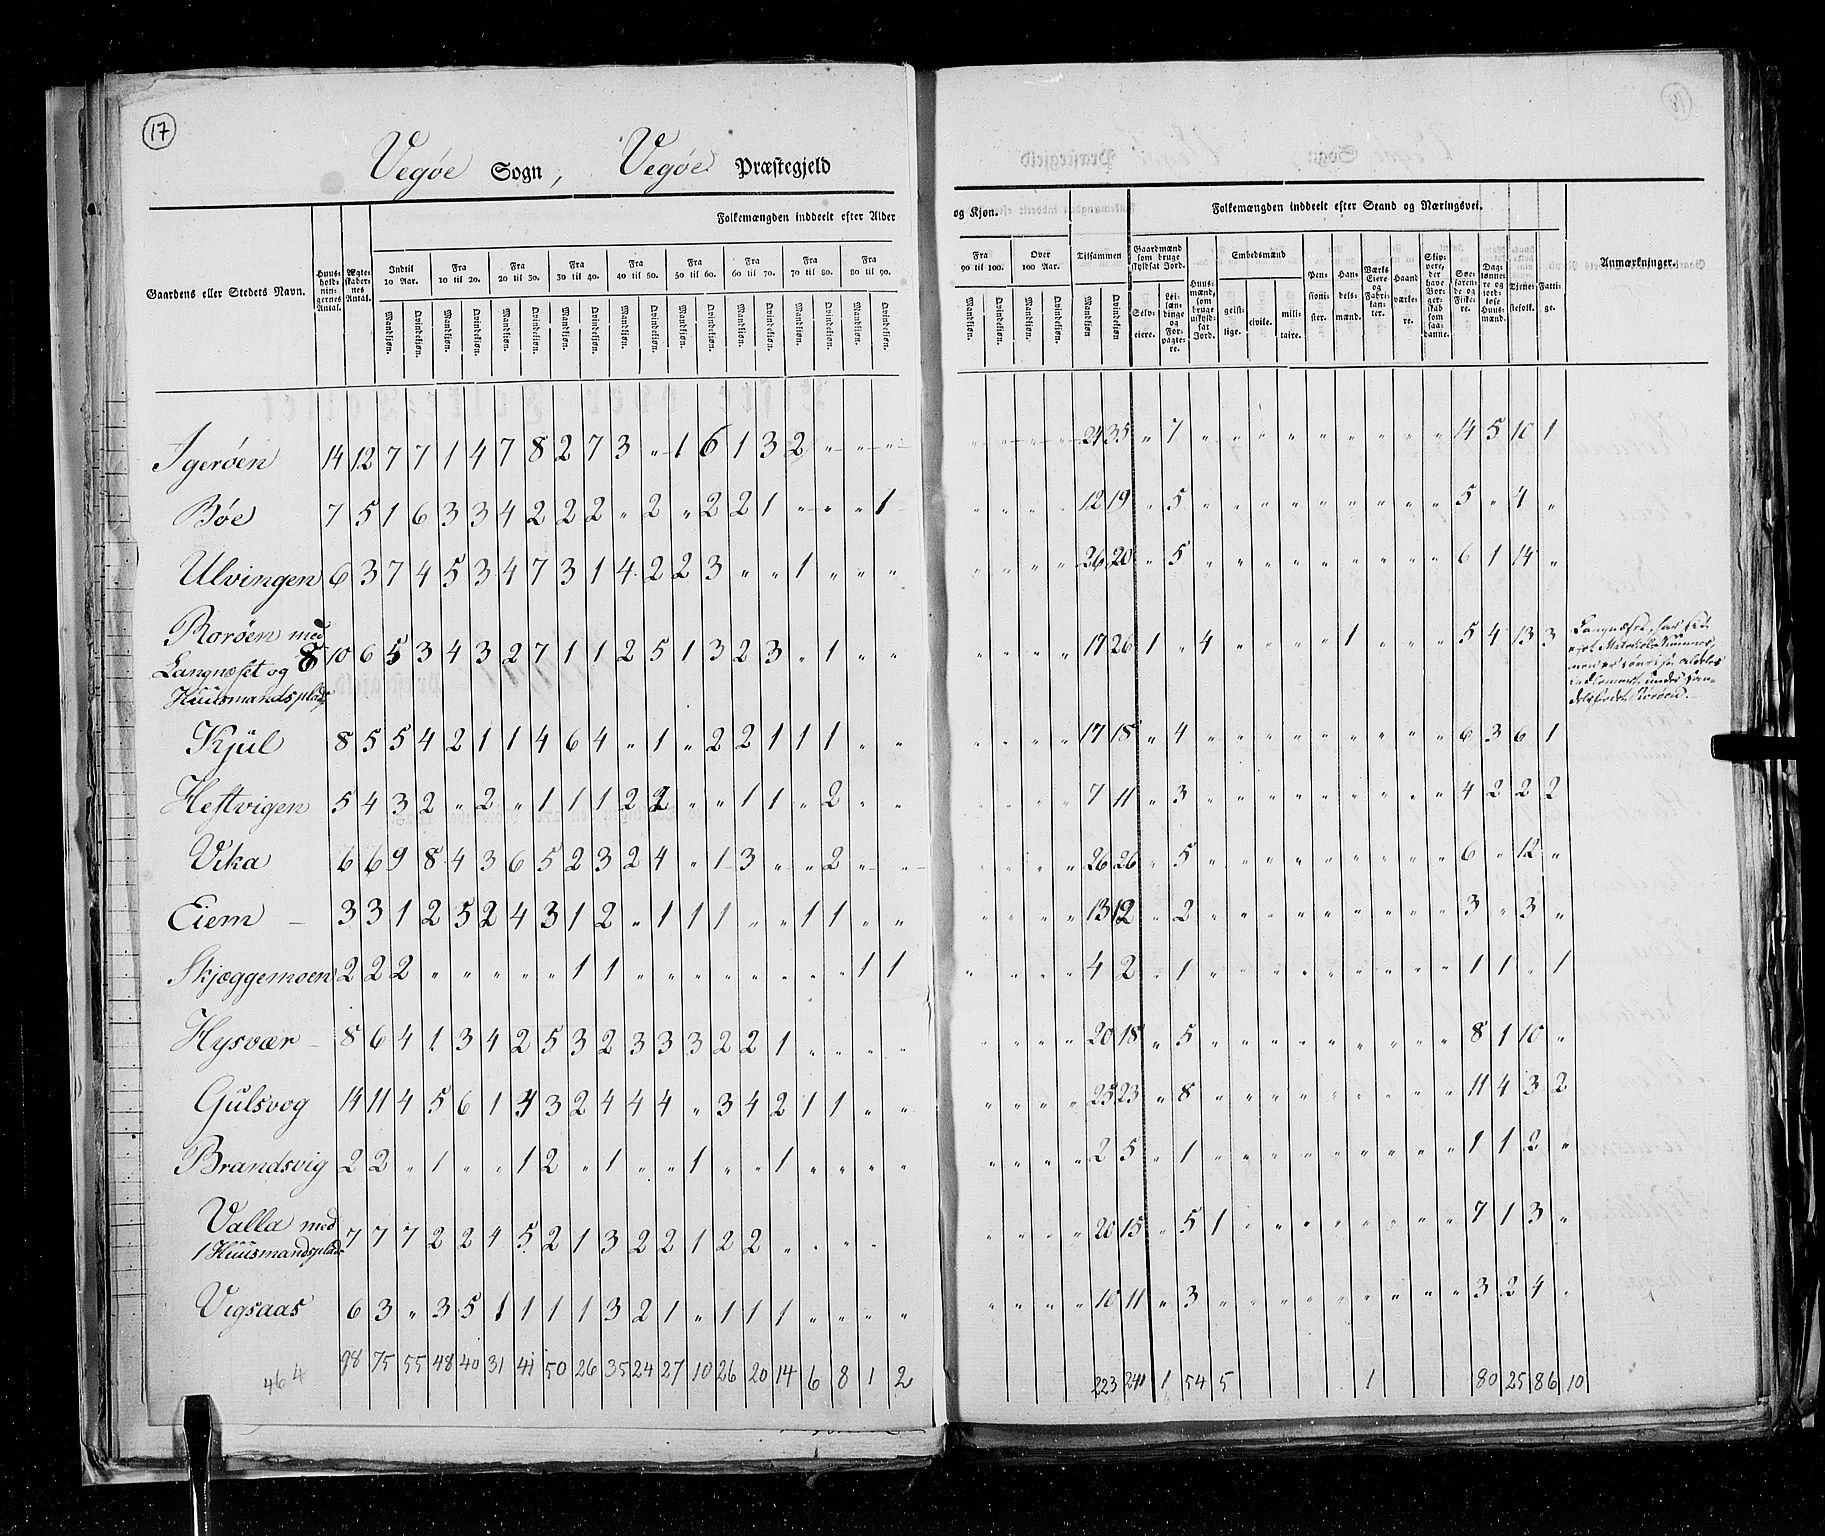 17
Vegøe Sogn, Vegøe Præstegjeld
Folkemængden inddeelt efter Alder og Kjøn.
Folkemængden inddeelt efter Stand og Næringsvei.
Gaardens eller Stedets Navn. Huus-holdningernes Antal. Ægteskabernes Antal. Indtil 10 Aar. Fra 10 til 20. Fra 20 til 30. Fra 30 til 40. Fra 40 til 50. Fra 50 til 60. Fra 60 til 70. Fra 70 til 80. Fra 80 til 90. Fra 90 til 100. Over 100 Aar. Tilsammen
Mandkjøn. Qvindekjøn.
Gaardmænd som bruge skyldsat Jord. Selveiere. Leilændinge og Forpagtere. Huusmænd, som bruge uskyldsat Jord. Embedsmænd geistlige. civile. militaire. Pensionister. Handelsmænd. Værks Eiere og Fabrikanter. Haandværkere. Skippere, der have Borgerskab som saadanne. Søefarende og Fiskere. Daglønnere og jordløse Huusmænd. Tjenestefolk. Fattige. Anmærkninger.
Igerøen 14 12 7 7 1 4 7 8 2 7 3 " 1 6 1 3 2 " " " " " " " 24 35 " 7 " " " " " " " " " 14 5 10 1
Bøe 7 5 1 6 3 3 4 2 2 2 " 2 " 2 2 1 " " " 1 " " " " 12 19 " 5 " " " " " " " " " 5 " 4 "
Ulvingen 6 3 7 4 5 3 4 7 3 1 4 2 2 3 " " 1 " " " " " " " 26 20 " 5 " " " " " " " " " 6 1 14 "
Rorøen med
Langnæset og 8 10 6 5 3 4 3 2 7 1 1 2 5 1 3 2 3 " 1 " " " " " " 17 26 1 " 4 " " " " 1 " " " 5 4 13 3
Huusmandsplads
Kjul 8 5 5 4 2 1 1 4 6 4 " 1 " 2 2 1 1 1 " " " " " " 17 18 " 4 " " " " " " " " " 6 3 6 1
Hestvigen 5 4 3 2 " 2 " 1 1 1 2 2 " " 1 1 " 2 " " " " " " 7 11 " 3 " " " " " " " " " 4 2 2 2
Vika 6 6 9 8 4 3 6 5 2 3 2 4 " 1 3 " " 2 " " " " " " 26 26 " 5 " " " " " " " " " 6 " 12 "
Eiem 3 3 1 2 5 2 4 3 1 2 " 1 1 1 " " 1 1 " " " " " " 13 12 " 2 " " " " " " " " " 3 " 3 "
Skjæggemoen 2 2 2 " " " " " 1 1 " " " " " " " " 1 1 " " " " 4 2 " 1 " " " " " " " " " 1 1 " 1
Hysvær 8 6 4 1 3 4 2 5 3 2 3 3 3 2 2 1 " " " " " " " " 20 18 " 5 " " " " " " " " " 8 1 10 "
Gulsvog 14 11 4 5 6 1 4 3 2 4 4 4 " 3 4 2 1 1 " " " " " " 25 23 " 8 " " " " " " " " " 11 4 3 2
Brandsvig 2 2 " 1 " " 1 2 " 1 " " 1 " " 1 " " " " " " " " 2 5 " 1 " " " " " " " " " 1 1 2 "
Valla med
1 Huusmandsplads 7 7 7 2 2 4 5 2 1 3 2 2 1 2 2 " " " " " " " " 20 15 " 5 1 " " " " " " " " 7 1 3 "
Vigsaas 6 3 " 3 5 1 1 1 1 3 2 1 " 1 1 1 " " " " " " " " 10 11 " 3 " " " " " " " " " 3 2 4 "
464 98 75 55 48 40 31 41 50 26 35 24 27 10 26 20 14 6 8 1 2 223 241 1 54 5 1 80 25 86 10